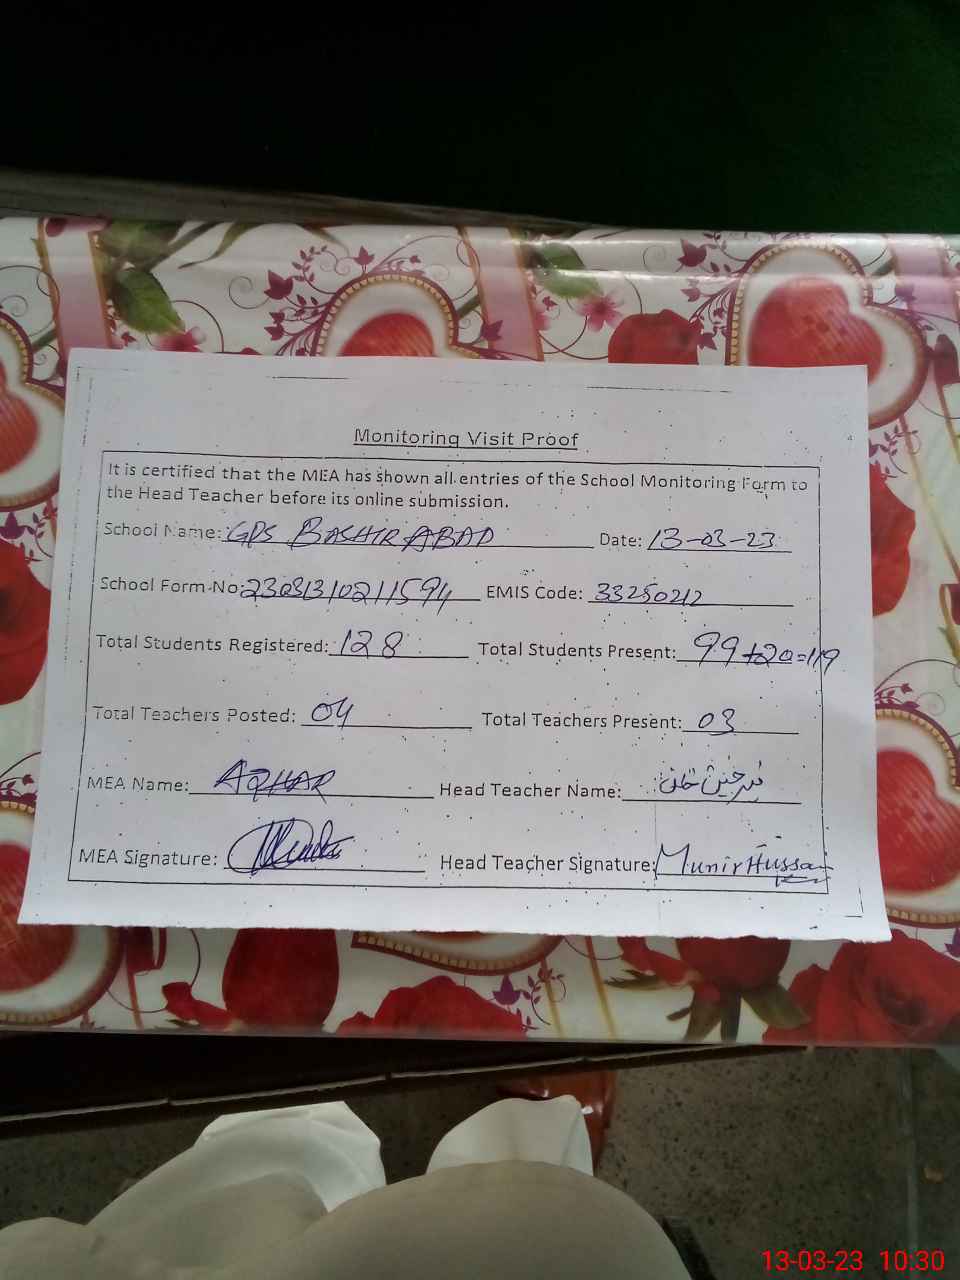 Monitoring Visit Proof
It is certified that the MEA has shown all entries of the School Monitoring Form to
the Head Teacher before its online submission.
School Name: GPS BASHIR ABAD Date: 13-03-23
School Form No: 2303131021 1594 EMIS Code: 33250212
Total Students Registered: 128 Total Students Present: 99+20=119
Total Teachers Posted: 04 Total Teachers Present: 03
MEA Name: AZHAR Head Teacher Name:
MEA Signature: Head Teacher Signature: Munir Hussain
13-03-23 10:30